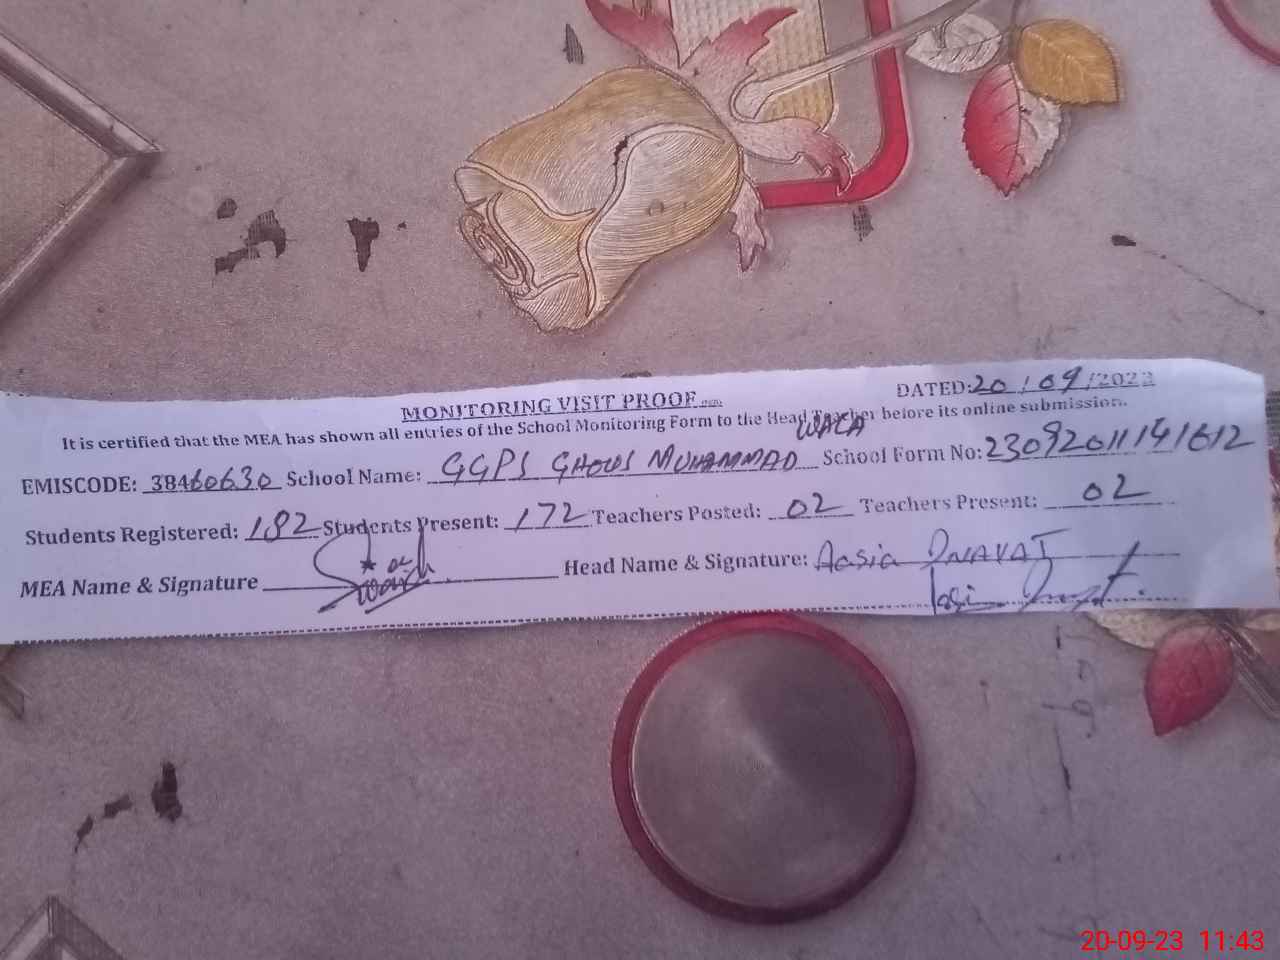 MONITORING VISIT PROOF
DATED: 20/09/2023
It is certified that the MEA has shown all entries of the School Monitoring Form to the Head Teacher before its online submission.
EMISCODE: 38460630 School Name: GGPS GHOUS MUHAMMAD WALA School Form No: 23092011141612
Students Registered: 182 Students Present: 172 Teachers Posted: 02 Teachers Present: 02
MEA Name & Signature Head Name & Signature: Aasia INAYAT
20-09-23 11:43